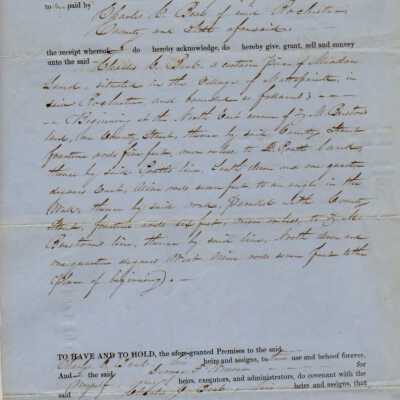 to me paid by
Charles C. Peak of said Rochester
County and State aforesaid.
the receipt whereof I do hereby acknowledge, do hereby give, grant, sell and convey
unto the said - Charles C. Peak a certain piece of Meadow
Land, situated in the Village of Mattapoisett, in
said Rochester and bounded as follows;
Beginning at the North East corner of
land, on County Street, thence by said County Street
fourteen rods five feet, more or less to land,
thence by said line, South seven and one quarter
degrees East, Nine rods seven feet to an angle in the
Wall, thence by said wall, Parallel with County
Street, fourteen rods six feet, more or less, to
line, thence by said line, North seven and
one quarter degrees West Nine rods seven feet to the
Place of beginning). -
TO HAVE AND TO HOLD, the afore-granted Premises to the said
Charles C. Peak his heirs and assigns, to their use and behoof forever,
And I the said James for
myself my heirs, executors, and administrators, do covenant with the
said Charles C. Peak his heirs and assigns, that